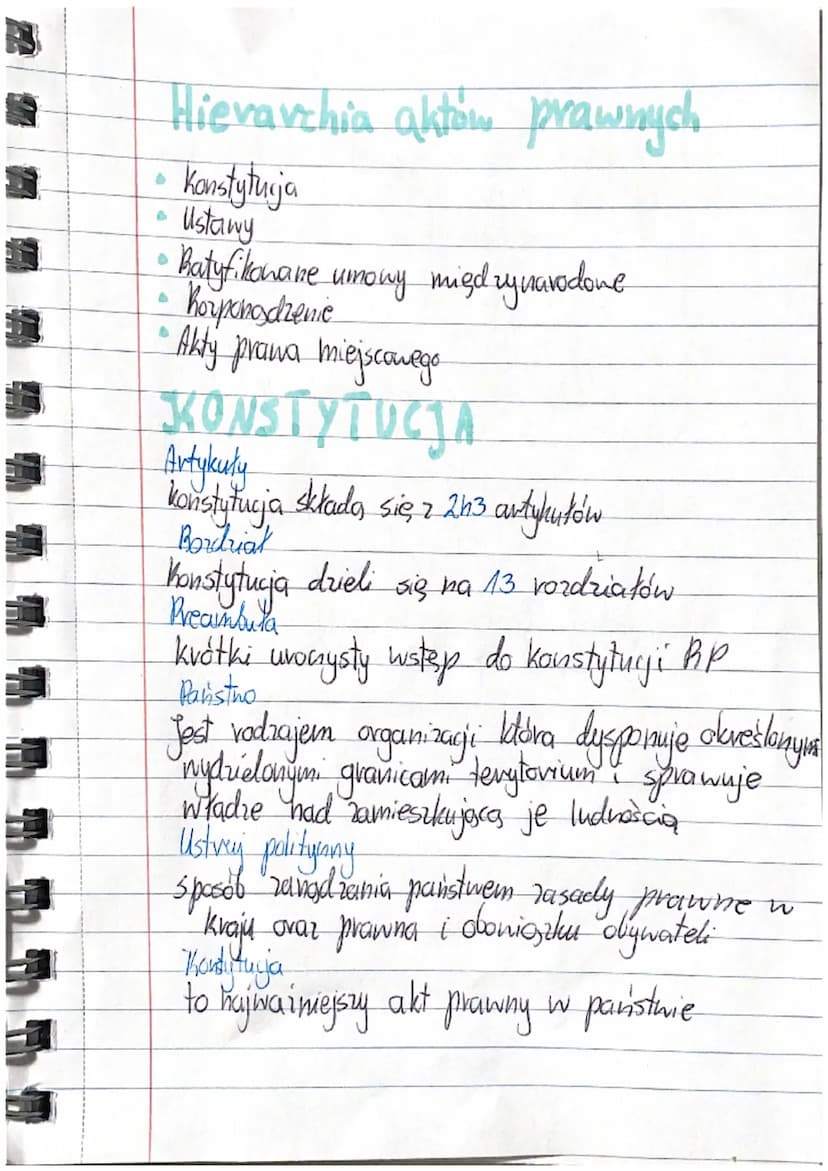 Hierarchia aktów prawnych
• Konstytucja
• Ustawy
• Ratyfikowane umowy międzynarodowe
• Rozporządzenie
• Akty prawa miejscowego
KONSTYTUCJA
Artykuły
Konstytucja składa się z 243 artykułów
Rozdział
Konstytucja dzieli się na 13 rozdziałów
Preambuła
Krótki uroczysty wstęp do konstytucji RP
Państwo
Jest rodzajem organizacji która dysponuje określonym
wydzielonymi granicami terytorium i sprawuje
władze nad zamieszkującą je ludnością
Ustrój polityczny
sposób zarządzania państwem zasady prawne w
kraju oraz prawna i obowiązku obywateli
Konstytucja
to najważniejszy akt prawny w państwie